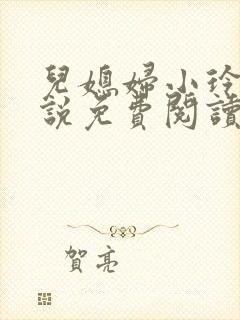 兒媳婦小玲
說免費閱讀
賀亮